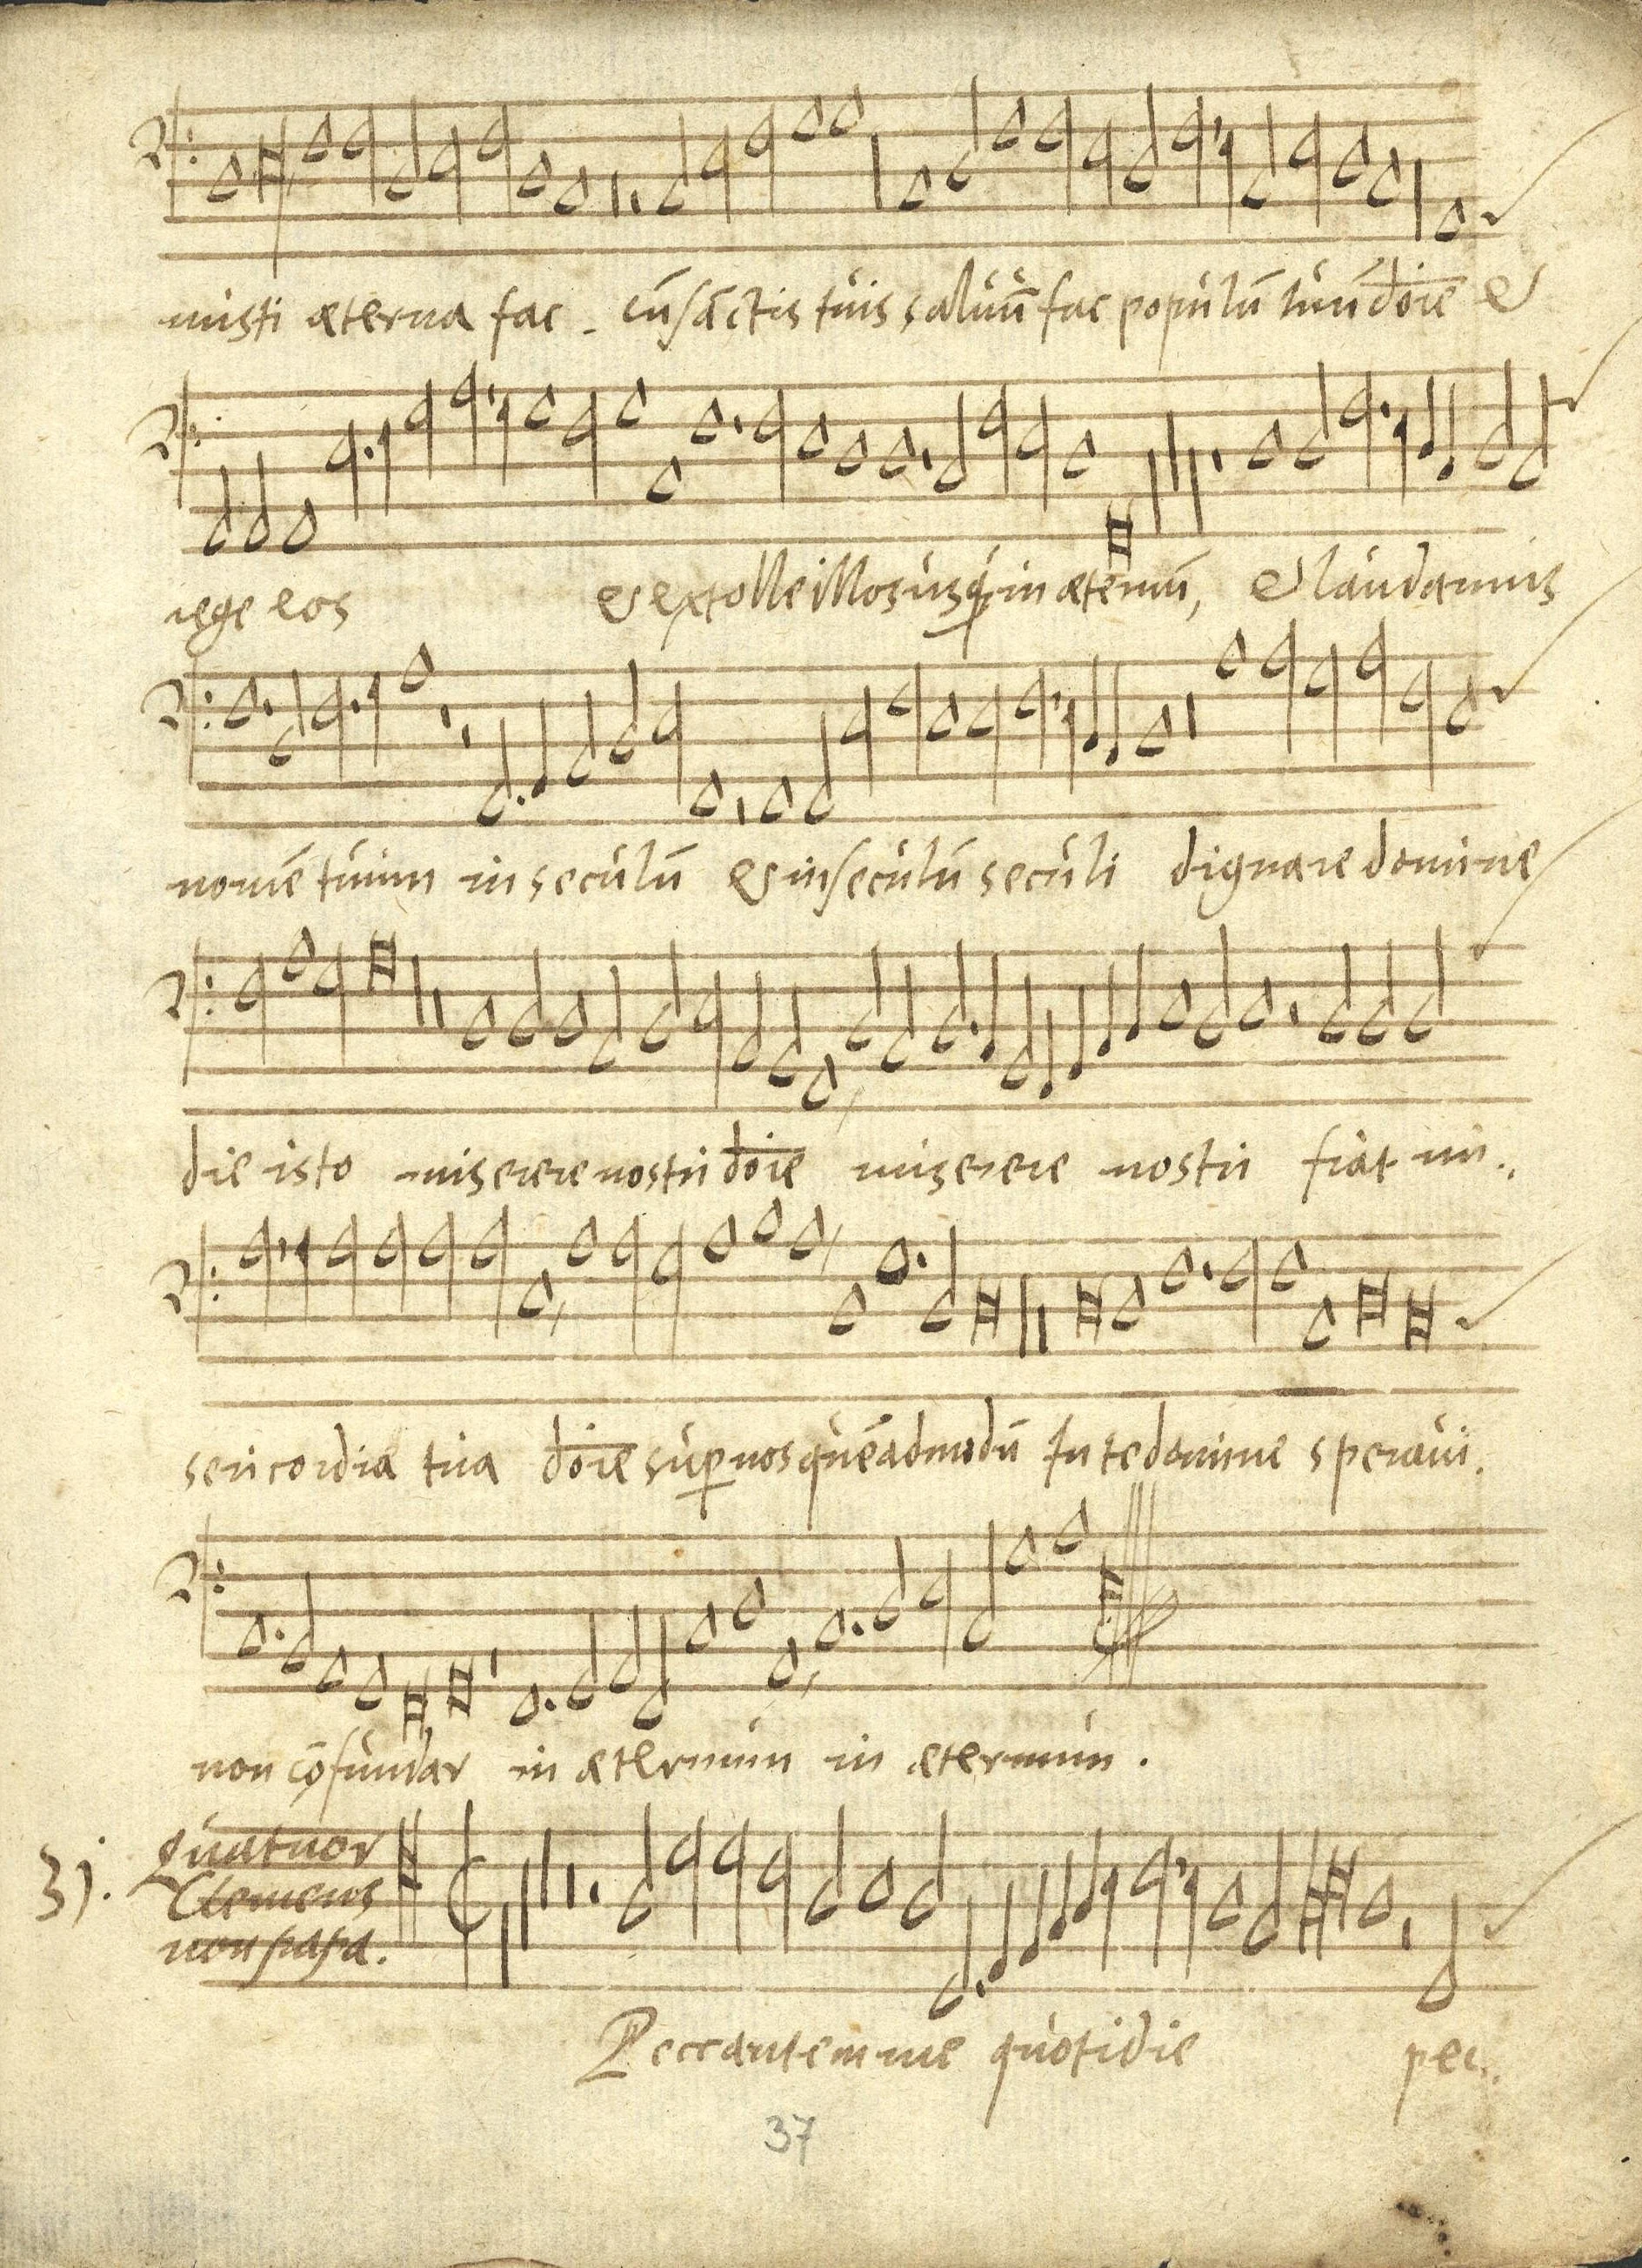 misti æterna fac . cū sāctis tuis salvū fac populū tuū dōie &
rege eos & extolle illos usq; in æternū, & laudamus
nomē tuum in seculū & in seculū seculi dignare domine
die isto miserere nostri dōie miserere nostri fiat mi..
sericordia tua dōie super nos quēadmodū In te domine speravi.
non cōfundar in æternum in æternum .
31. Quatuor
Clemens
non papa.
Peccantem me quotidie pec..
37